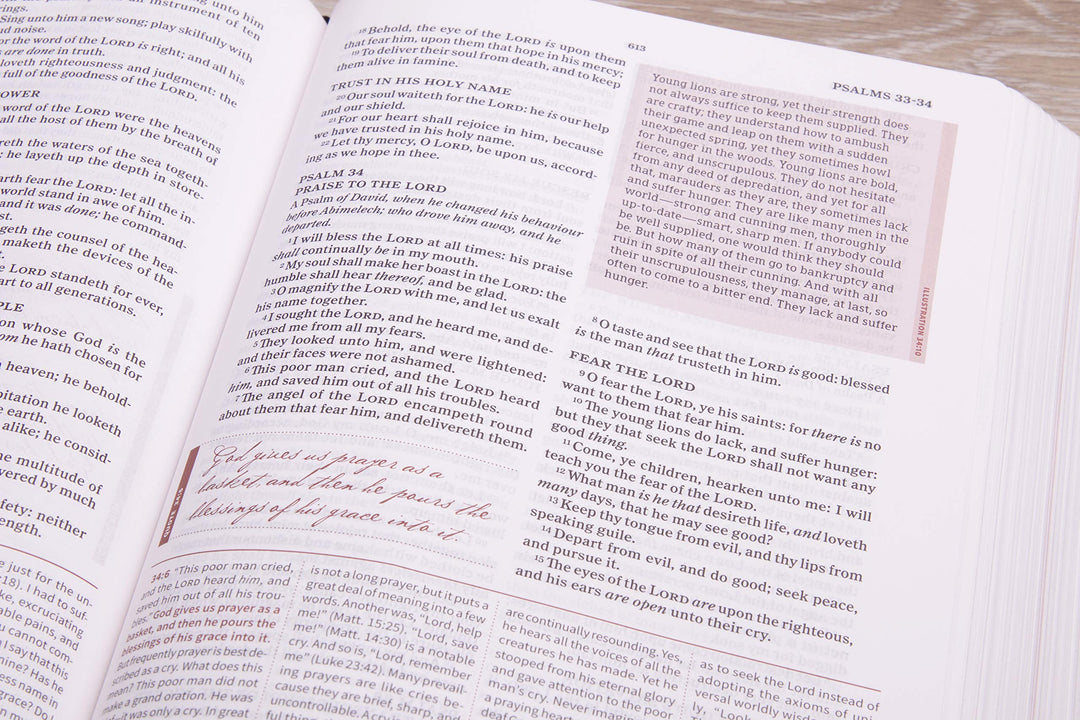 ring unto him
rings.
an instrument of ten
Sing unto him a new song; play skilfully with
nd noise.
or the word of the LORD is right; and all his
s are done in truth.
loveth righteousness and judgment: the
full of the goodness of the LORD.
OWER
word of the LORD were the heavens
all the host of them by the breath of
reth the waters of the sea togeth-
: he layeth up the depth in store-
arth fear the LORD: let all the in-
world stand in awe of him.
and it was done; he command-
st.
geth the counsel of the hea-
maketh the devices of the
e LORD standeth for ever,
art to all generations.
PLE
on whose God is the
om he hath chosen for
heaven; he behold-
pitation he looketh
e earth.
alike; he consid-
he multitude of
vered by much
fety: neither
ength.
e just for the un-
:18). I had to suf-
ke, excruciating
able pains, and
u cannot com-
I say that this
nine? Has he
ess name in
grace? Do I
18 Behold, the eye of the LORD is upon them
that fear him, upon them that hope in his mercy;
19 To deliver their soul from death, and to keep
them alive in famine.
TRUST IN HIS HOLY NAME
20 Our soul waiteth for the LORD: he is our help
and our shield.
21 For our heart shall rejoice in him, because
we have trusted in his holy name.
22 Let thy mercy, O LORD, be upon us, accord-
ing as we hope in thee.
PSALM 34
PRAISE TO THE LORD
A Psalm of David, when he changed his behaviour
before Abimelech; who drove him away, and he
departed.
1 I will bless the LORD at all times: his praise
shall continually be in my mouth.
2 My soul shall make her boast in the LORD: the
humble shall hear thereof, and be glad.
3 O magnify the LORD with me, and let us exalt
his name together.
4 I sought the LORD, and he heard me, and de-
livered me from all my fears.
5 They looked unto him, and were lightened:
and their faces were not ashamed.
6 This poor man cried, and the LORD heard
him, and saved him out of all his troubles.
7 The angel of the LORD encampeth round
about them that fear him, and delivereth them.
QUOTE 34:6
God gives us prayer as a
basket, and then he pours the
blessings of his grace into it.
613
PSALMS 33-34
Young lions are strong, yet their strength does
not always suffice to keep them supplied. They
are crafty; they understand how to ambush
their game and leap on them with a sudden
unexpected spring, yet they sometimes howl
for hunger in the woods. Young lions are bold,
fierce, and unscrupulous. They do not hesitate
from any deed of depredation, and yet for all
that, marauders as they are, they sometimes lack
and suffer hunger. They are like many men in the
world—strong and cunning men, thoroughly
up-to-date—smart, sharp men. If anybody could
be well supplied, one would think they should
be. But how many of them go to bankruptcy and
ruin in spite of all their cunning. And with all
their unscrupulousness, they manage, at last, so
often to come to a bitter end. They lack and suffer
hunger.
ILLUSTRATION 34:10
8 O taste and see that the LORD is good: blessed
is the man that trusteth in him.
FEAR THE LORD
9 O fear the LORD, ye his saints: for there is no
want to them that fear him.
10 The young lions do lack, and suffer hunger:
but they that seek the LORD shall not want any
good thing.
11 Come, ye children, hearken unto me: I will
teach you the fear of the LORD.
12 What man is he that desireth life, and loveth
many days, that he may see good?
13 Keep thy tongue from evil, and thy lips from
speaking guile.
14 Depart from evil, and do good; seek peace,
and pursue it.
15 The eyes of the LORD are upon the righteous,
and his ears are open unto their cry.
34:6 "This poor man cried,
and the LORD heard him, and
saved him out of all his trou-
bles." God gives us prayer as a
basket, and then he pours the
blessings of his grace into it.
But frequently prayer is best de-
scribed as a cry. What does this
mean? This poor man did not
make a grand oration. He was
it was only a cry. In great
is not a long prayer, but it puts a
great deal of meaning into a few
words. Another was, "Lord, help
me!" (Matt. 15:25). "Lord, save
me!" (Matt. 14:30) is a notable
cry. And so is, "Lord, remember
me" (Luke 23:42). Many prevail-
ing prayers are like cries be-
cause they are brief, sharp, and
uncontrollable. A cry is
are continually resounding. Yes,
he hears all the voices of all the
creatures he has made. Yet he
stooped from his eternal glory
and gave attention to the poor
man's cry. Never imagine
a praying heart
as to seek the Lord instead of
adopting the axioms of uni-
versal worldly wisdom